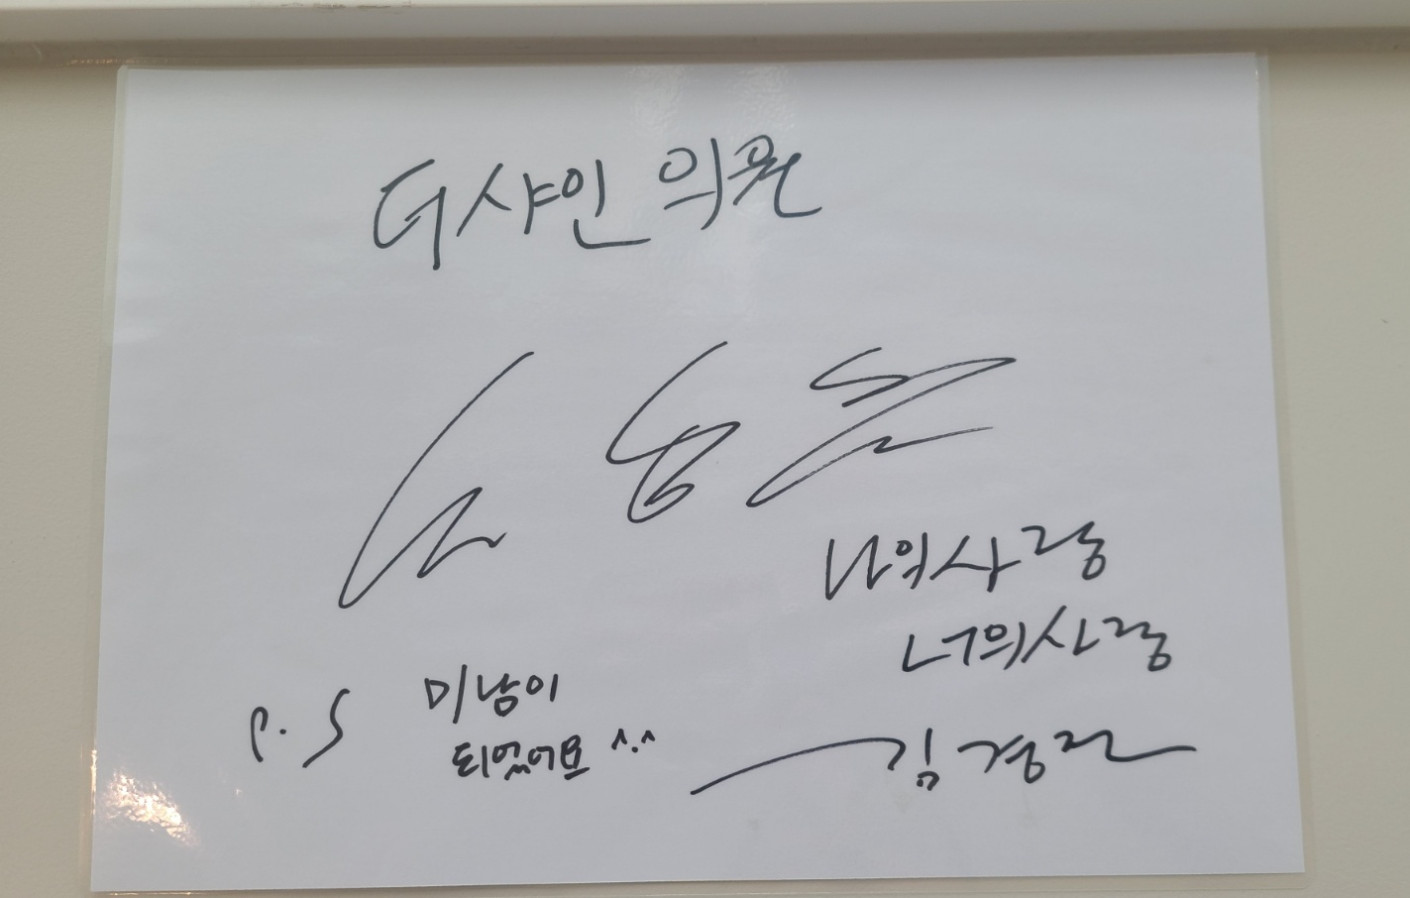 더샤인 의원
나의사랑
너의사랑
P.S 미남이
되었어요 ^.^
김경진